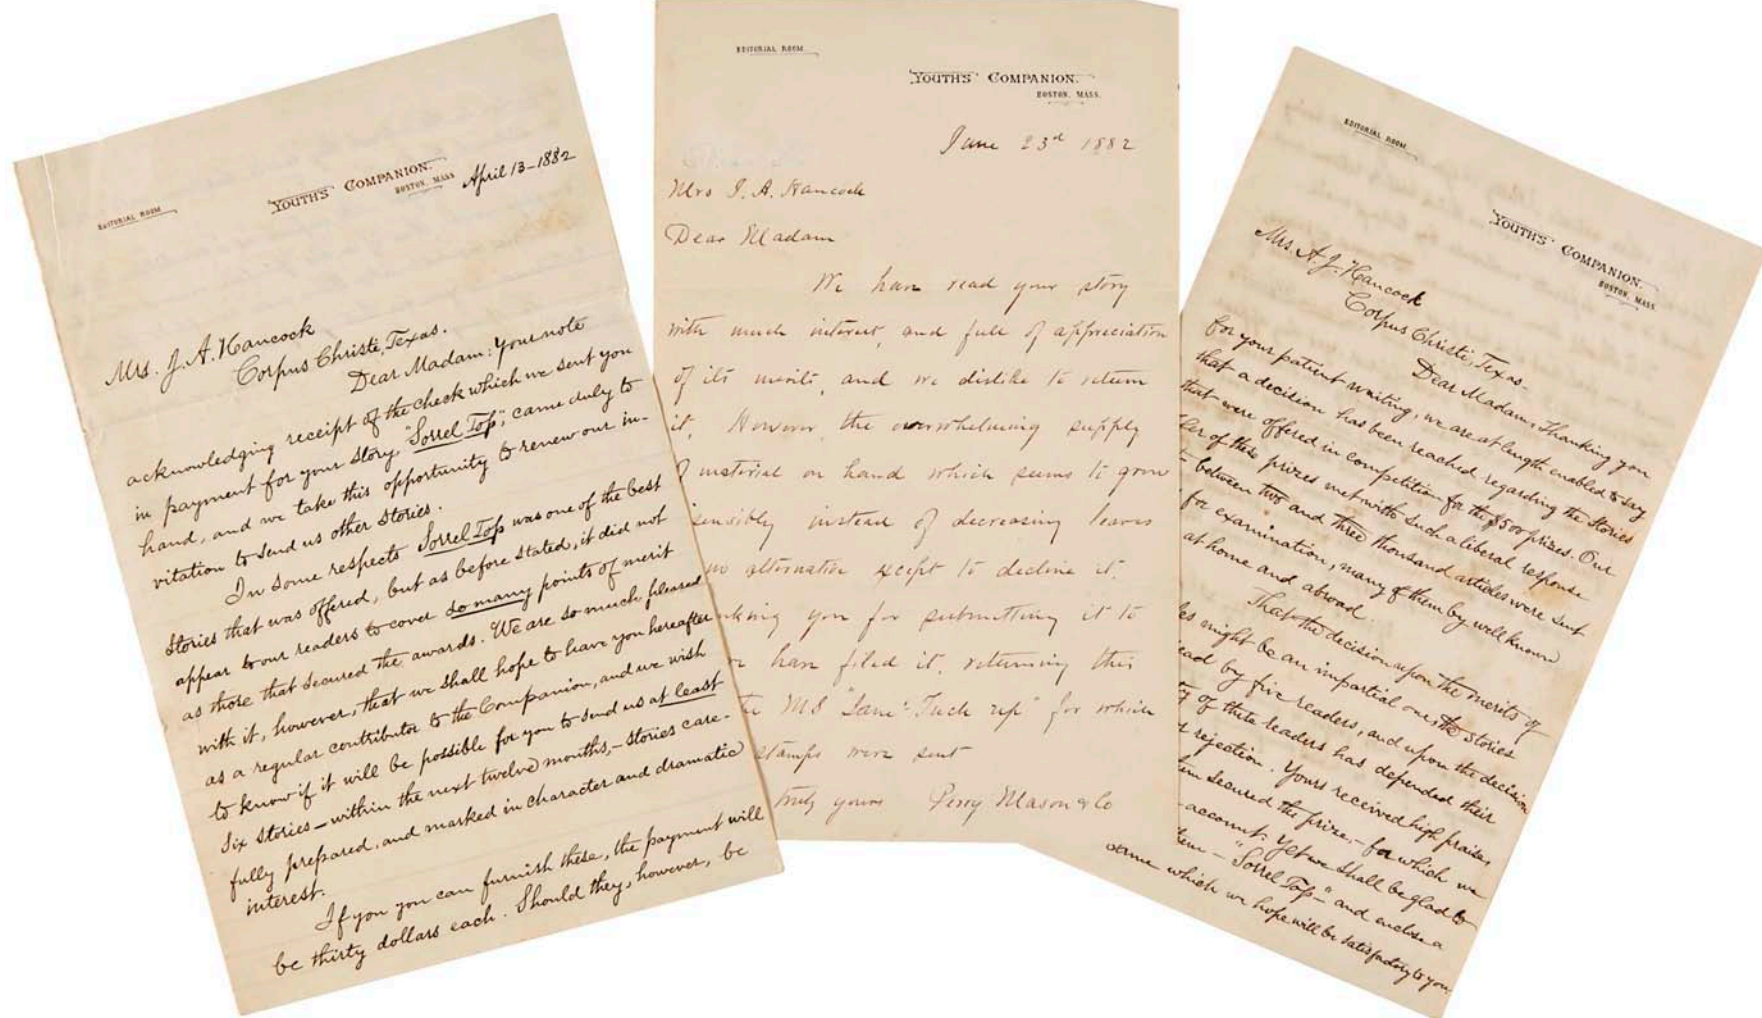 EDITORIAL ROOM
YOUTH'S COMPANION.
BOSTON, MASS
April 13-1882
Mrs. J. A. Hancock
Corpus Christi, Texas.
Dear Madam: Your note
acknowledging receipt of the check which we sent you
in payment for your story "Sorrel Top", came duly to
hand, and we take this opportunity to renew our in-
vitation to send us other stories.
In some respects Sorrel Top was one of the best
stories that was offered, but as before stated, it did not
appear to our readers to cover so many points of merit
as those that secured the awards. We are so much pleased
with it, however, that we shall hope to have you hereafter
as a regular contributor to the Companion, and we wish
to know if it will be possible for you to send us at least
six stories - within the next twelve months, - stories care-
fully prepared, and marked in character and dramatic
interest.
If you you can furnish these, the payment will
be thirty dollars each. Should they, however, be
EDITORIAL ROOM
YOUTH'S COMPANION.
BOSTON, MASS.
June 23d 1882
Mrs J. A. Hancock
Dear Madam
We have read your story
with much interest, and full of appreciation
of its merits, and we dislike to return
it. However the overwhelming supply
of material on hand which seems to grow
sensibly instead of decreasing leaves
no alternative except to decline it.
you for submitting it to
have filed it, returning this
MS "Jane Tuck up" for which
stamps were sent
truly yours Perry Mason & Co
EDITORIAL ROOM
YOUTH'S COMPANION.
BOSTON, MASS
Mrs. A. J. Hancock
Corpus Christi, Texas.
Dear Madam, Thanking you
for your patient waiting, we are at length enabled to say
that a decision has been reached regarding the stories
that were offered in competition for the $500 prizes. Our
of these prizes met with such a liberal response
between two and three thousand articles were sent
for examination, many of them by well known
at home and abroad.
That the decision upon the merits of
might be an impartial one, the stories
read by five readers, and upon the decision
of these readers has depended their
rejection. Yours received high praise,
secured the prize, - for which we
account. Yet we shall be glad to
"Sorrel Top -" and enclose a
which we hope will be satisfactory to you.